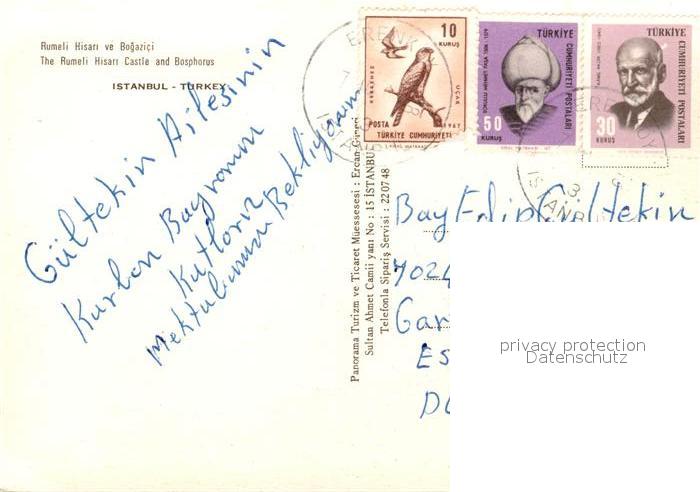 Rumeli Hisarı ve Boğaziçi
The Rumeli Hisarı Castle and Bosphorus
ISTANBUL - TURKEY
Gültekin Ailesinin
Kurban Bayramını
Kutlarız
Mektubunuzu Bekliyorum
Panorama Turizm ve Ticaret Müessesesi : Ercan
Sultan Ahmet Camii yanı No : 15 İSTANBUL
Telefonla Sipariş Servisi : 220748
10
KURUŞ
UÇAK
POSTA
TÜRKİYE CUMHURİYETİ
TÜRKİYE
CUMHURİYETİ POSTALARI
50
KURUŞ
TÜRKİYE
CUMHURİYETİ POSTALARI
30
KURUŞ
ERENKÖY
Bay Edip Gültekin
7024
Gar
Es
privacy protection
Datenschutz